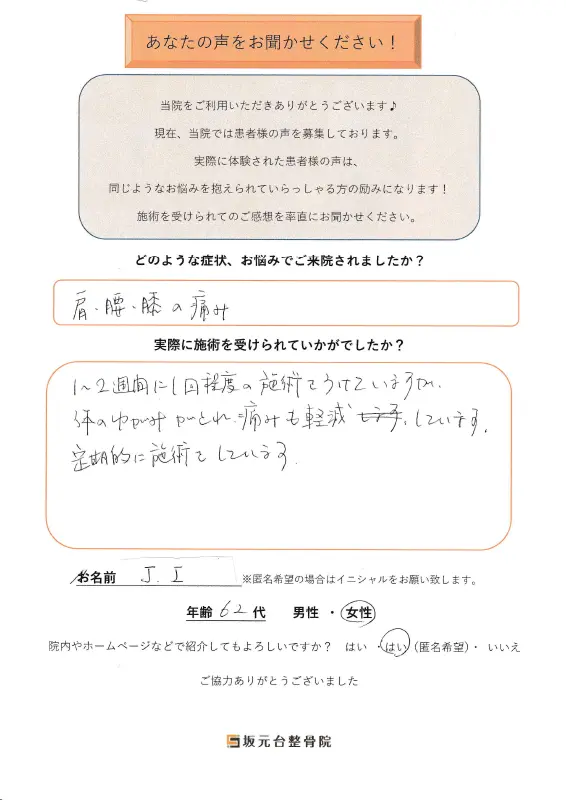 あなたの声をお聞かせください！
当院をご利用いただきありがとうございます♪
現在、当院では患者様の声を募集しております。
実際に体験された患者様の声は、
同じようなお悩みを抱えられていらっしゃる方の励みになります！
施術を受けられてのご感想を率直にお聞かせください。
どのような症状、お悩みでご来院されましたか？
肩・腰・膝の痛み
実際に施術を受けられていかがでしたか？
1〜2週間に1回程度の施術をうけていますが、
体のゆがみがとれ、痛みも軽減しています。
定期的に施術をしています。
お名前 J.I ※匿名希望の場合はイニシャルをお願い致します。
年齢 62 代 男性 ・ 女性
院内やホームページなどで紹介してもよろしいですか？ はい ・はい（匿名希望）・ いいえ
ご協力ありがとうございました
坂元台整骨院